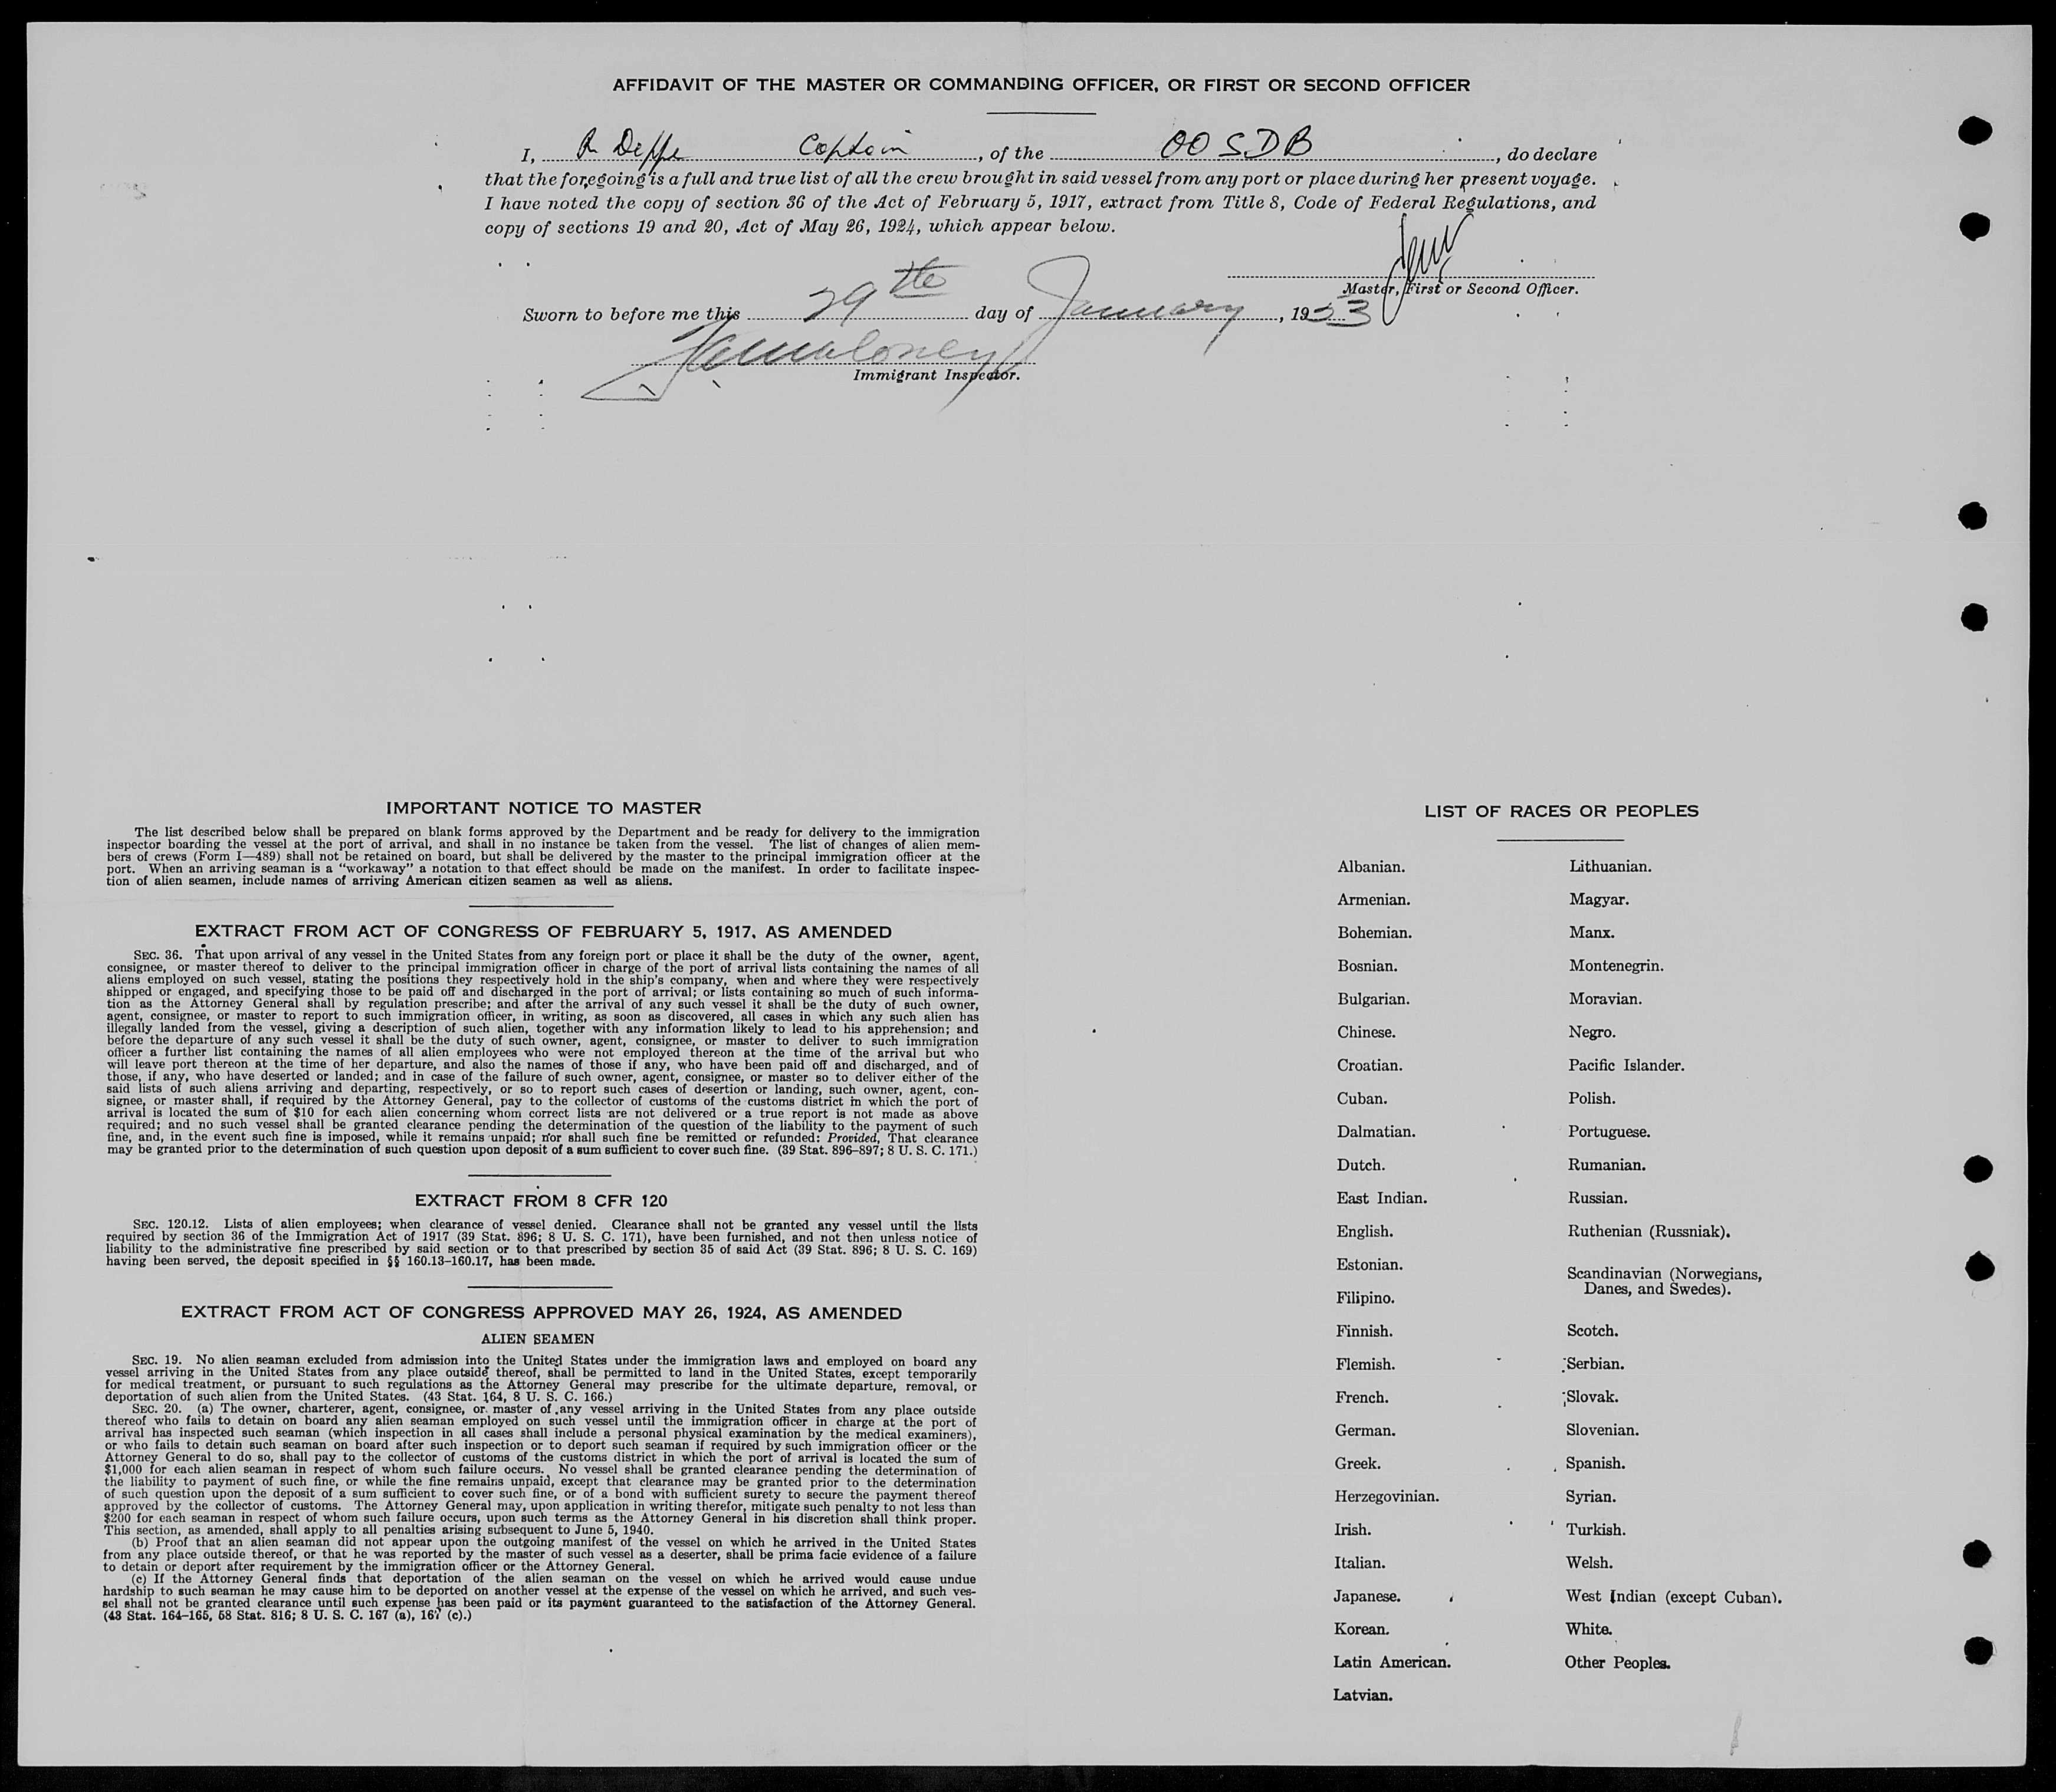 AFFIDAVIT OF THE MASTER OR COMMANDING OFFICER, OR FIRST OR SECOND OFFICER
I, R Deppe Captain, of the OO SDB, do declare
that the foregoing is a full and true list of all the crew brought in said vessel from any port or place during her present voyage.
I have noted the copy of section 36 of the Act of February 5, 1917, extract from Title 8, Code of Federal Regulations, and
copy of sections 19 and 20, Act of May 26, 1924, which appear below.
Master, First or Second Officer.
Sworn to before me this 29th day of January, 1953
Immigrant Inspector.
IMPORTANT NOTICE TO MASTER
The list described below shall be prepared on blank forms approved by the Department and be ready for delivery to the immigration
inspector boarding the vessel at the port of arrival, and shall in no instance be taken from the vessel. The list of changes of alien mem-
bers of crews (Form I—489) shall not be retained on board, but shall be delivered by the master to the principal immigration officer at the
port. When an arriving seaman is a "workaway" a notation to that effect should be made on the manifest. In order to facilitate inspec-
tion of alien seamen, include names of arriving American citizen seamen as well as aliens.
EXTRACT FROM ACT OF CONGRESS OF FEBRUARY 5, 1917, AS AMENDED
SEC. 36. That upon arrival of any vessel in the United States from any foreign port or place it shall be the duty of the owner, agent,
consignee, or master thereof to deliver to the principal immigration officer in charge of the port of arrival lists containing the names of all
aliens employed on such vessel, stating the positions they respectively hold in the ship's company, when and where they were respectively
shipped or engaged, and specifying those to be paid off and discharged in the port of arrival; or lists containing so much of such informa-
tion as the Attorney General shall by regulation prescribe; and after the arrival of any such vessel it shall be the duty of such owner,
agent, consignee, or master to report to such immigration officer, in writing, as soon as discovered, all cases in which any such alien has
illegally landed from the vessel, giving a description of such alien, together with any information likely to lead to his apprehension; and
before the departure of any such vessel it shall be the duty of such owner, agent, consignee, or master to deliver to such immigration
officer a further list containing the names of all alien employees who were not employed thereon at the time of the arrival but who
will leave port thereon at the time of her departure, and also the names of those if any, who have been paid off and discharged, and of
those, if any, who have deserted or landed; and in case of the failure of such owner, agent, consignee, or master so to deliver either of the
said lists of such aliens arriving and departing, respectively, or so to report such cases of desertion or landing, such owner, agent, con-
signee, or master shall, if required by the Attorney General, pay to the collector of customs of the customs district in which the port of
arrival is located the sum of $10 for each alien concerning whom correct lists are not delivered or a true report is not made as above
required; and no such vessel shall be granted clearance pending the determination of the question of the liability to the payment of such
fine, and, in the event such fine is imposed, while it remains unpaid; nor shall such fine be remitted or refunded: Provided, That clearance
may be granted prior to the determination of such question upon deposit of a sum sufficient to cover such fine. (39 Stat. 896–897; 8 U. S. C. 171.)
EXTRACT FROM 8 CFR 120
SEC. 120.12. Lists of alien employees; when clearance of vessel denied. Clearance shall not be granted any vessel until the lists
required by section 36 of the Immigration Act of 1917 (39 Stat. 896; 8 U. S. C. 171), have been furnished, and not then unless notice of
liability to the administrative fine prescribed by said section or to that prescribed by section 35 of said Act (39 Stat. 896; 8 U. S. C. 169)
having been served, the deposit specified in §§ 160.13–160.17, has been made.
EXTRACT FROM ACT OF CONGRESS APPROVED MAY 26, 1924, AS AMENDED
ALIEN SEAMEN
SEC. 19. No alien seaman excluded from admission into the United States under the immigration laws and employed on board any
vessel arriving in the United States from any place outside thereof, shall be permitted to land in the United States, except temporarily
for medical treatment, or pursuant to such regulations as the Attorney General may prescribe for the ultimate departure, removal, or
deportation of such alien from the United States. (43 Stat. 164, 8 U. S. C. 166.)
SEC. 20. (a) The owner, charterer, agent, consignee, or master of any vessel arriving in the United States from any place outside
thereof who fails to detain on board any alien seaman employed on such vessel until the immigration officer in charge at the port of
arrival has inspected such seaman (which inspection in all cases shall include a personal physical examination by the medical examiners),
or who fails to detain such seaman on board after such inspection or to deport such seaman if required by such immigration officer or the
Attorney General to do so, shall pay to the collector of customs of the customs district in which the port of arrival is located the sum of
$1,000 for each alien seaman in respect of whom such failure occurs. No vessel shall be granted clearance pending the determination of
the liability to payment of such fine, or while the fine remains unpaid, except that clearance may be granted prior to the determination
of such question upon the deposit of a sum sufficient to cover such fine, or of a bond with sufficient surety to secure the payment thereof
approved by the collector of customs. The Attorney General may, upon application in writing therefor, mitigate such penalty to not less than
$200 for each seaman in respect of whom such failure occurs, upon such terms as the Attorney General in his discretion shall think proper.
This section, as amended, shall apply to all penalties arising subsequent to June 5, 1940.
(b) Proof that an alien seaman did not appear upon the outgoing manifest of the vessel on which he arrived in the United States
from any place outside thereof, or that he was reported by the master of such vessel as a deserter, shall be prima facie evidence of a failure
to detain or deport after requirement by the immigration officer or the Attorney General.
(c) If the Attorney General finds that deportation of the alien seaman on the vessel on which he arrived would cause undue
hardship to such seaman he may cause him to be deported on another vessel at the expense of the vessel on which he arrived, and such ves-
sel shall not be granted clearance until such expense has been paid or its payment guaranteed to the satisfaction of the Attorney General.
(43 Stat. 164–165, 58 Stat. 816; 8 U. S. C. 167 (a), 167 (c).)
LIST OF RACES OR PEOPLES
Albanian.
Armenian.
Bohemian.
Bosnian.
Bulgarian.
Chinese.
Croatian.
Cuban.
Dalmatian.
Dutch.
East Indian.
English.
Estonian.
Filipino.
Finnish.
Flemish.
French.
German.
Greek.
Herzegovinian.
Irish.
Italian.
Japanese.
Korean.
Latin American.
Latvian.
Lithuanian.
Magyar.
Manx.
Montenegrin.
Moravian.
Negro.
Pacific Islander.
Polish.
Portuguese.
Rumanian.
Russian.
Ruthenian (Russniak).
Scandinavian (Norwegians,
Danes, and Swedes).
Scotch.
Serbian.
Slovak.
Slovenian.
Spanish.
Syrian.
Turkish.
Welsh.
West Indian (except Cuban).
White.
Other Peoples.